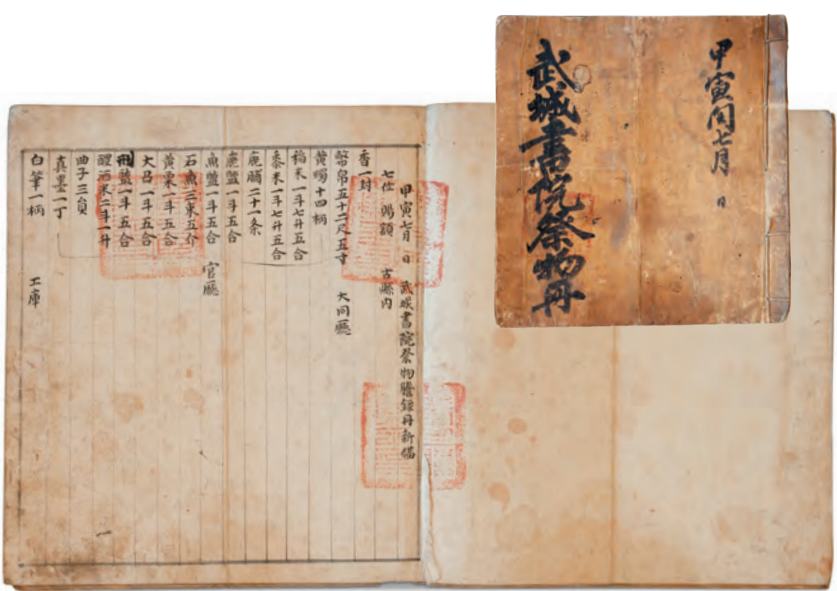 甲寅閏七月 日
武城書院祭物冊
甲寅七月 日 武城書院祭物謄録冊新備
七位 賜額 古縣內
香一封
幣帛五十二尺五寸 大同廳
黄燭十四柄
稻米一斗七升五合
黍米一斗七升五合
鹿脯二十一条
鹿醢一斗五合
魚醢一斗五合 官廳
石魚三束五介
黄栗一斗五合
大召一斗五合
刑鹽一斗五合
醴酒米二斗一升
曲子三負
真墨一丁
白筆一柄 工庫